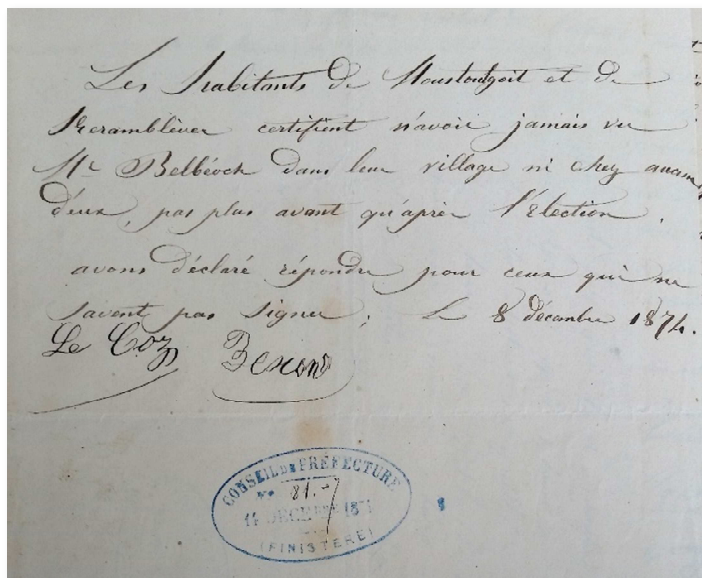 Les habitants de Moustoulgoit et de
Keramblêver certifient n'avoir jamais vu
Mr Belbéoch dans leur village ni chez aucun
d'eux, pas plus avant qu'après l'élection,
avons déclaré répondre pour ceux qui ne
savent pas signer; Le 8 décembre 1874.
Le Coz
CONSEIL DE PRÉFECTURE
No 81.
14 DÉCEMBRE 187
(FINISTERE)